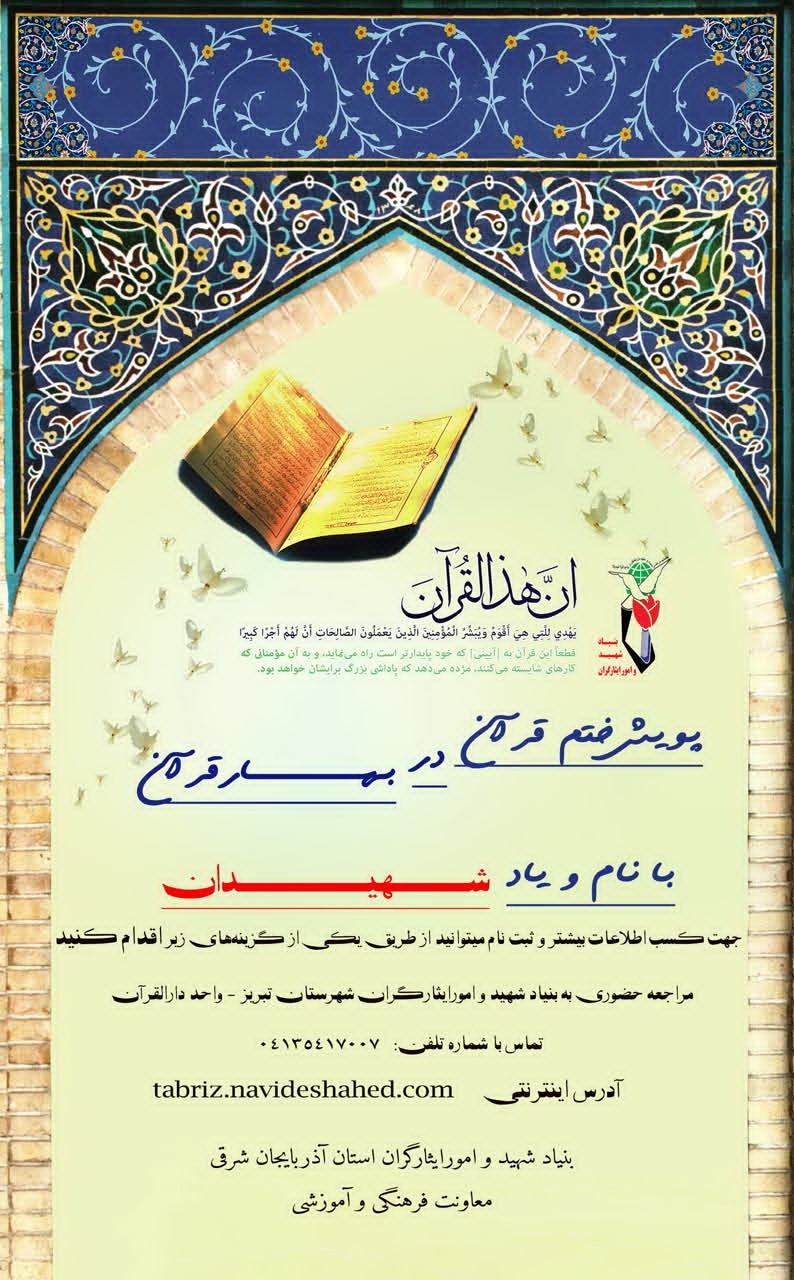 انَّ هٰذَا القُرآنَ
يَهْدِي لِلَّتِي هِيَ أَقْوَمُ وَيُبَشِّرُ الْمُؤْمِنِينَ الَّذِينَ يَعْمَلُونَ الصَّالِحَاتِ أَنَّ لَهُمْ أَجْرًا كَبِيرًا
قطعاً این قرآن به [آیینی] که خود پایدارتر است راه می‌نماید، و به آن مؤمنانی که
کارهای شایسته می‌کنند، مژده می‌دهد که پاداشی بزرگ برایشان خواهد بود.
بنیاد
شهید
و امور ایثارگران
پویش ختم قرآن در بهار قرآن
با نام و یاد شهیدان
جهت کسب اطلاعات بیشتر و ثبت نام میتوانید از طریق یکی از گزینه‌های زیر اقدام کنید
مراجعه حضوری به بنیاد شهید و امور ایثارگران شهرستان تبریز - واحد دارالقرآن
تماس با شماره تلفن: ۰۴۱۳۵۴۱۷۰۰۷
آدرس اینترنتی tabriz.navideshahed.com
بنیاد شهید و امور ایثارگران استان آذربایجان شرقی
معاونت فرهنگی و آموزشی